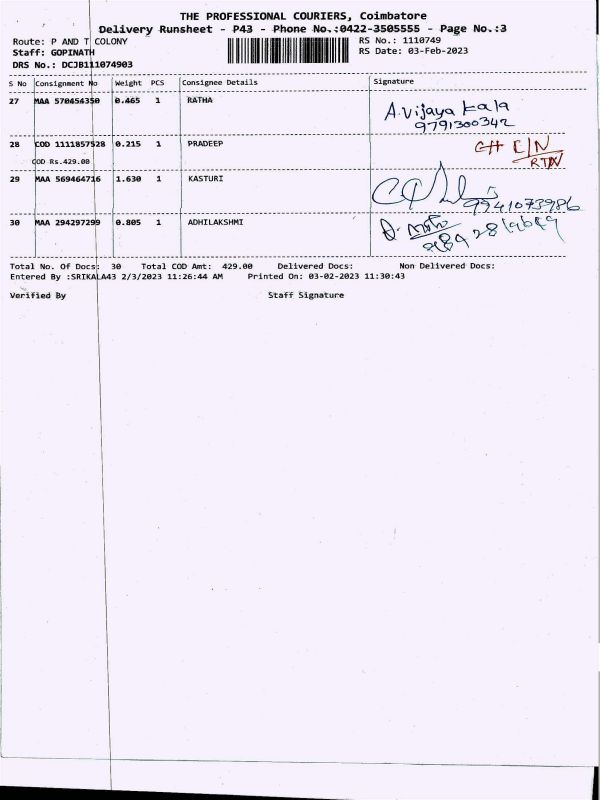 THE PROFESSIONAL COURIERS, Coimbatore
Delivery Runsheet - P43 - Phone No.:0422-3505555 - Page No.:3
Route: P AND T COLONY RS No.: 1110749
Staff: GOPINATH RS Date: 03-Feb-2023
DRS No.: DCJB111074903
S No Consignment No Weight PCS Consignee Details Signature
27 MAA 570454350 0.465 1 RATHA A.Vijaya kala
9791300342
28 COD 1111857528 0.215 1 PRADEEP
COD Rs.429.00 RTN
29 MAA 569464716 1.630 1 KASTURI
9941073986
30 MAA 294297299 0.805 1 ADHILAKSHMI
Total No. Of Docs: 30 Total COD Amt: 429.00 Delivered Docs: Non Delivered Docs:
Entered By :SRIKALA43 2/3/2023 11:26:44 AM Printed On: 03-02-2023 11:30:43
Verified By Staff Signature